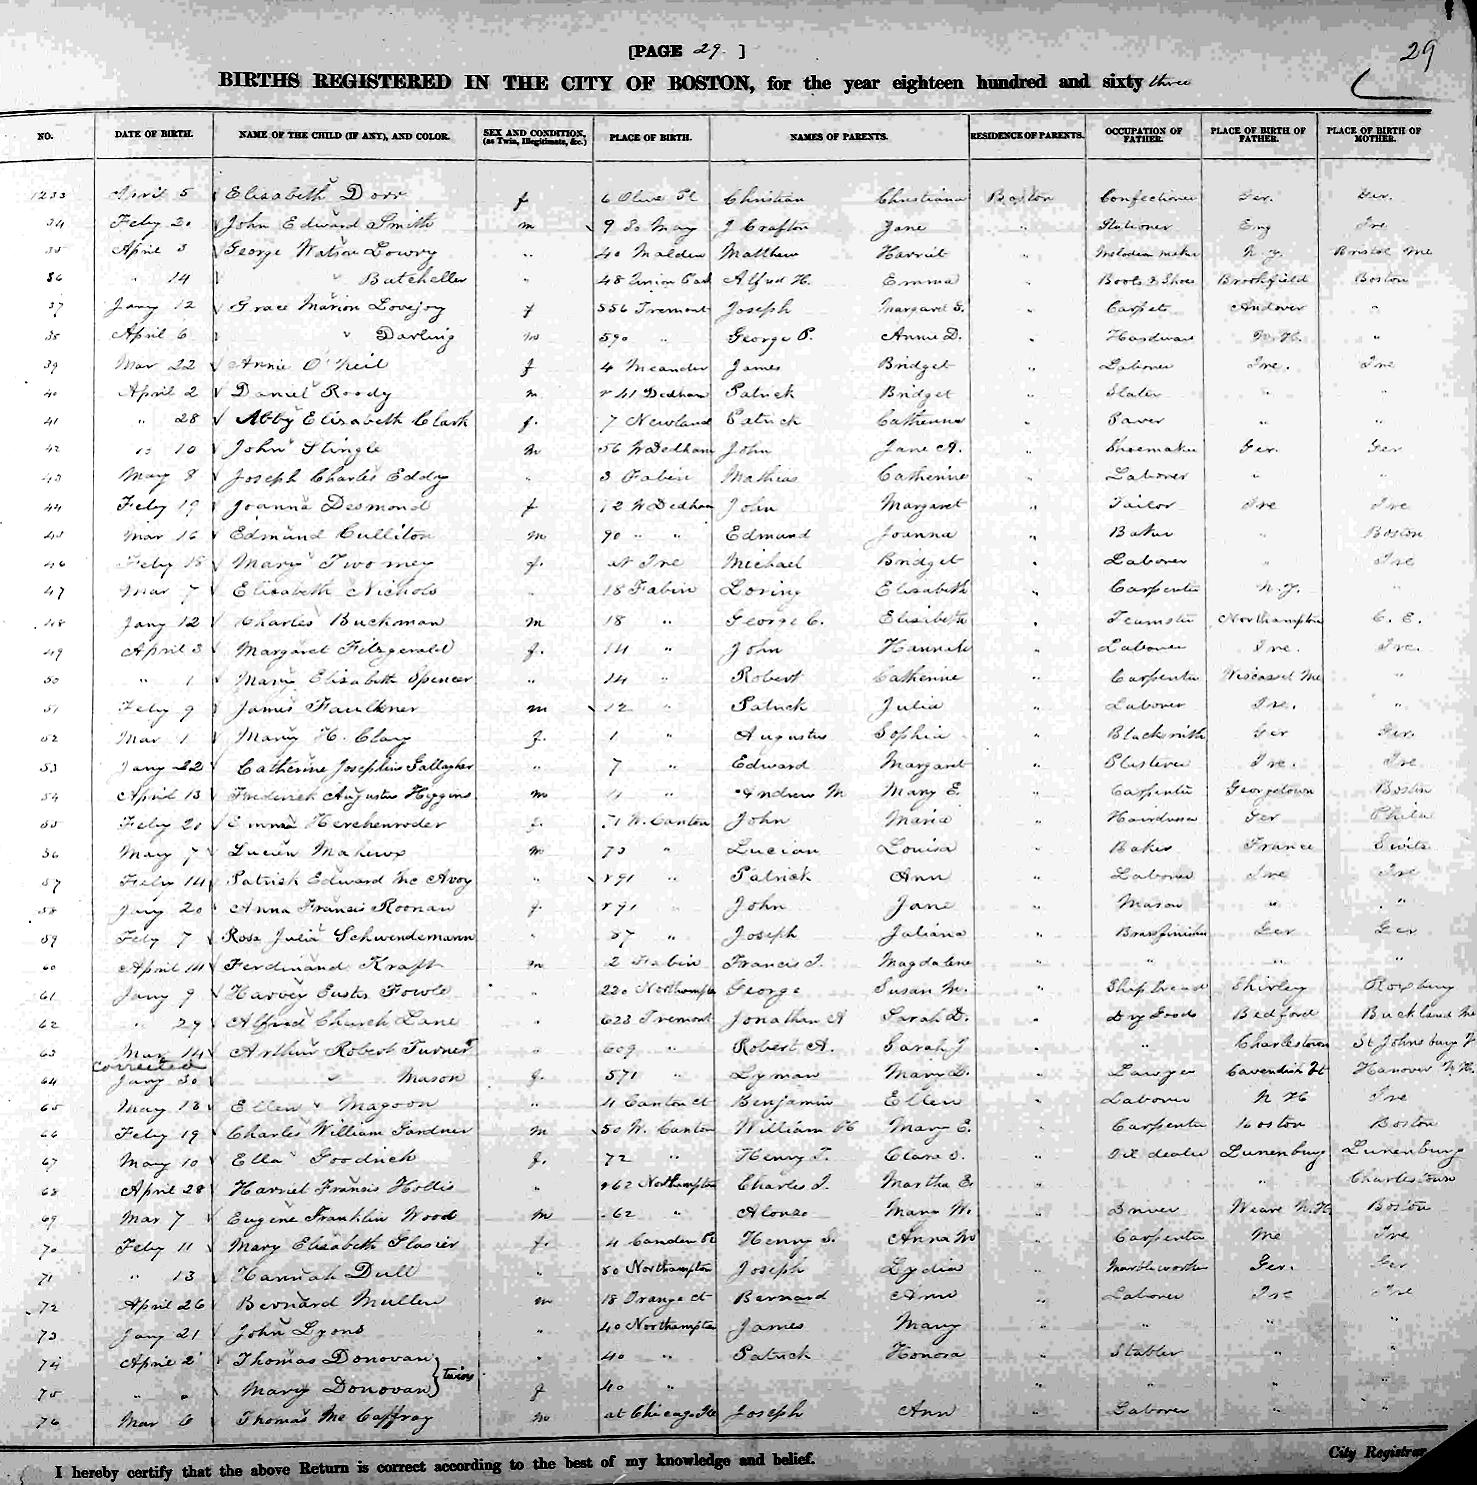 [PAGE 29. ]
29
BIRTHS REGISTERED IN THE CITY OF BOSTON, for the year eighteen hundred and sixty three
NO. DATE OF BIRTH. NAME OF THE CHILD (IF ANY), AND COLOR. SEX AND CONDITION, (as Twin, Illegitimate, &c.) PLACE OF BIRTH. NAMES OF PARENTS. RESIDENCE OF PARENTS. OCCUPATION OF FATHER. PLACE OF BIRTH OF FATHER. PLACE OF BIRTH OF MOTHER.
1233 April 5 Elisabeth Dorr f 6 Olive St Christian Christiana Boston Confectioner Ger. Ger.
34 Feby 20 John Edward Smith m 9 So May J Crafton Jane " Stationer Eng Ire
35 April 3 George Watson Lowry " 40 Malden Matthew Harriet " Melodeon maker N.Y. Bristol Me
36 " 14 " Batcheller " 48 Union Park Alfred H. Emma " Boots & Shoes Brookfield Boston
37 Jany 12 Grace Marion Lovejoy f 556 Tremont Joseph Margaret S. " Carpets Andover "
38 April 6 " Darling m 590 " George P. Annie D. " Hardware N.H. "
39 Mar 22 Annie O'Neil f 4 Meander James Bridget " Laborer Ire. Ire
40 April 2 Daniel Roody m r 41 Dedham Patrick Bridget " Slater " "
41 " 28 Abby Elisabeth Clark f. 7 Newland Patrick Catherine " Paver " "
42 " 10 John Stingle m 56 W Dedham John Jane A. " Shoemaker Ger. Ger
43 May 8 Joseph Charles Eddy " 3 Fabin Mathias Catherine " Laborer " "
44 Feby 19 Joanna Desmond f 12 W Dedham John Margaret " Tailor Ire Ire
45 Mar 16 Edmund Culliton m 90 " " Edmund Joanna " Baker " Boston
46 Feby 18 Mary Twomey f. at Ire Michael Bridget " Laborer " Ire
47 Mar 7 Elisabeth Nichols " 18 Fabin Loring Elisabeth " Carpenter N.Y. "
48 Jany 12 Charles Buckman m 18 " George C. Elisabeth " Teamster Northampton C. E.
49 April 3 Margaret Fitzgerald f. 14 " John Hannah " Laborer Ire. Ire.
50 " 1 Mary Elisabeth Spencer " 14 " Robert Catherine " Carpenter Wiscasset Me "
51 Feby 9 James Faulkner m 12 " Patrick Julia " Laborer Ire. "
52 Mar 1 Mary H. Clary f. 1 " Augustus Sophia " Blacksmith Ger Ger.
53 Jany 22 Catherine Josephine Gallagher " 7 " Edward Margaret " Plasterer Ire. Ire
54 April 13 Frederick Augustus Higgins m " Andrew M Mary E. " Carpenter Georgetown Boston
55 Feby 20 Emma Herchenroder f. 71 W. Canton John Maria " Hardware Ger Phila
56 May 7 Lucien Maheux m 73 " Lucian Louisa " Baker France Switz
57 Feby 14 Patrick Edward Mc Avoy " r 91 " Patrick Ann " Laborer Ire Ire
58 Jany 20 Anna Francis Roonan f. r 91 " John Jane " Mason " "
59 Feby 7 Rosa Julia Schwendemann " 87 " Joseph Juliana " Brassfinisher Ger Ger
60 April 14 Ferdinand Kraft m 2 Fabin Francis J. Magdalene " " " "
61 Jany 9 Harvey Fowle " 220 Northampton George Susan M. " Ship bread Shirley Roxbury
62 " 29 Alfred Church Lane " 623 Tremont Jonathan A Sarah D. " Dry Goods Bedford Buckland Me
63 Mar 14 Arthur Robert Turner " 609 " Robert A. Sarah J " " Charlestown St Johnsbury V
corrected
64 Jany 30 " Mason f. 571 " Lyman Mary D. " Lawyer Cavendish Vt Hanover N.H.
65 May 13 Ellen Magoon " 4 Canton ct Benjamin Ellen " Laborer N H Ire
66 Feby 19 Charles William Gardner m 50 W. Canton William H Mary E. " Carpenter Boston Boston
67 May 10 Ella Goodrich f. 72 " Henry T. Clara S. " dealer Lunenburg Lunenburg
68 April 28 Harriet Francis Hollis " r62 Northampton Charles J. Martha E. " " Charlestown
69 Mar 7 Eugene Franklin Wood m 62 " Alonzo Mary W. " Driver Weare N.H. Boston
70 Feby 11 Mary Elisabeth Glasier f. 4 Camden St Henry S. Anna M " Carpenter Me Ire
71 " 13 Hannah Dull " 80 Northampton Joseph Lydia " Marble worker Ger. Ger
72 April 26 Bernard Mullen m 18 Orange ct Bernard Ann " Laborer Ire Ire
73 Jany 21 John Lyons " 40 Northampton James Mary " " " "
74 April 2 Thomas Donovan } Twins " 40 " Patrick Honora " Stabler " "
75 " " Mary Donovan f 40 " " " " "
76 Mar 6 Thomas Mc Caffray m at Chicago Ill Joseph Ann " Laborer " "
I hereby certify that the above Return is correct according to the best of my knowledge and belief.
City Registrar